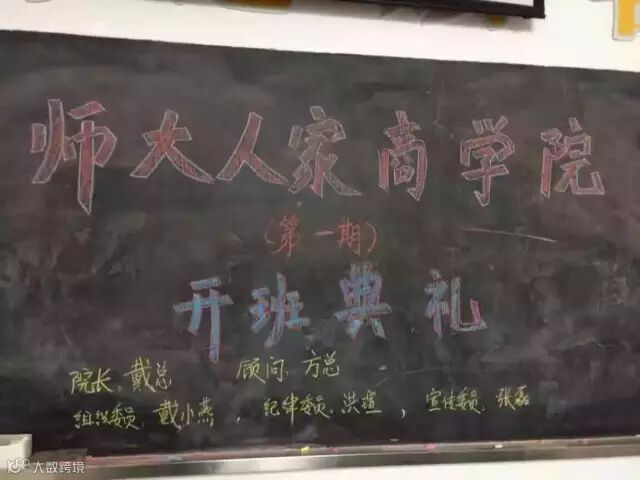 师大人家商学院
(第一期)
开班典礼
院长:戴总 顾问:方总
组织委员:戴小燕,纪律委员:洪萱,宣传委员:张磊
大数跨境